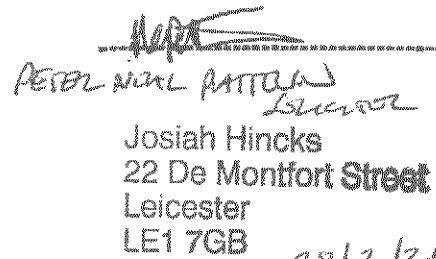 PETER NIGEL
SOLICITOR
Josiah Hincks
22 De Montfort Street
Leicester
LE1 7GB